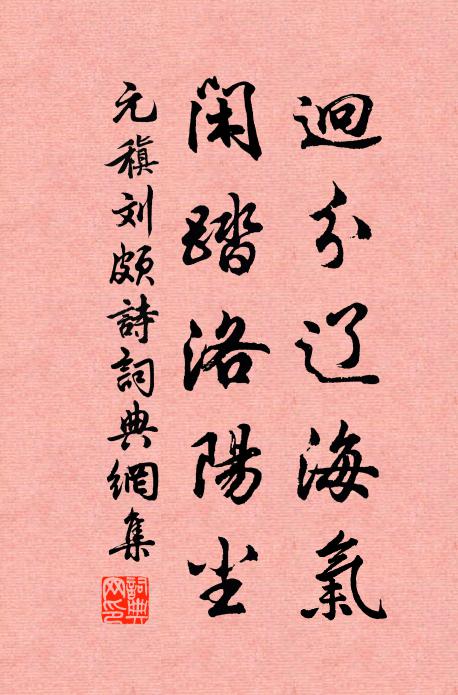 迥分辽海氣
閑踏洛陽尘
元稹刘頗詩詞典網集
詞典网印